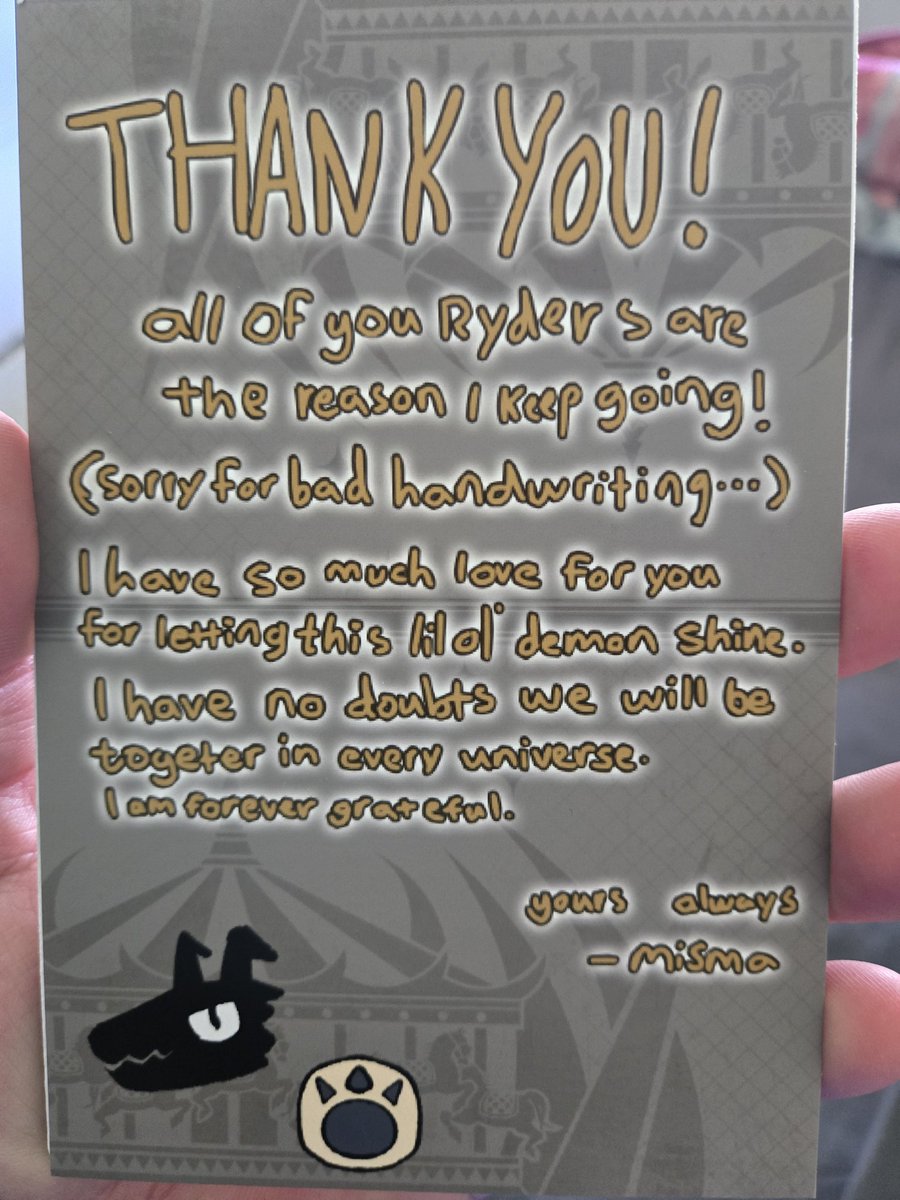 THANK YOU!
all of you Ryders are
the reason I keep going!
(sorry for bad handwriting...)
I have so much love for you
for letting this lil ol' demon shine.
I have no doubts we will be
togeter in every universe.
I am forever grateful.
yours always
- Misma